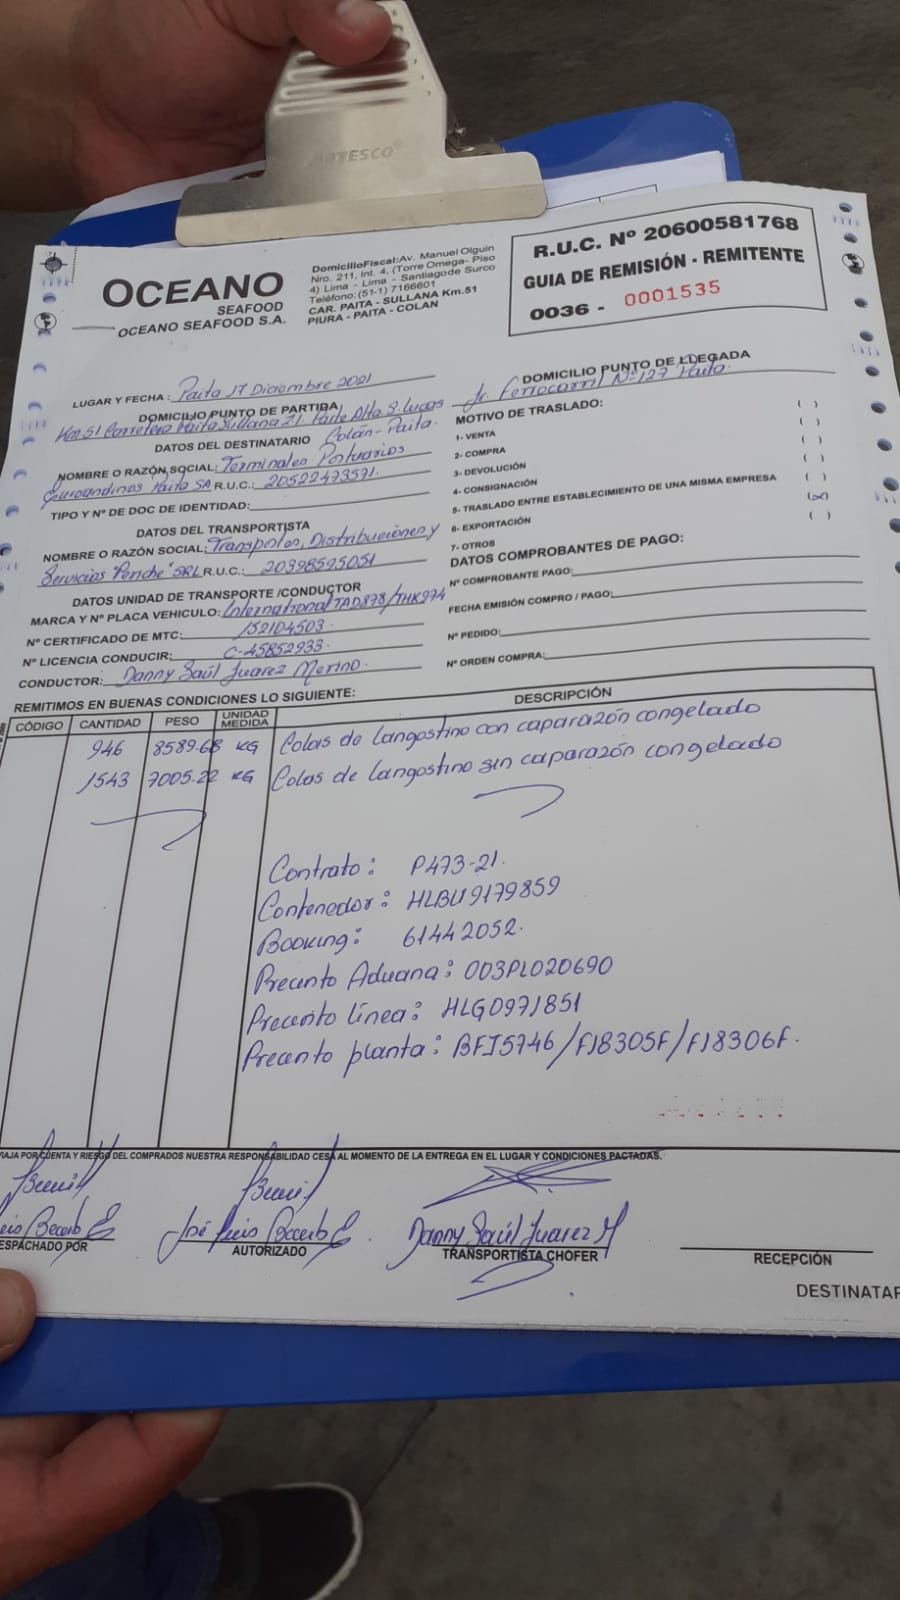 ARTESCO®
OCEANO
SEAFOOD
OCEANO SEAFOOD S.A.
DomicilioFiscal:Av. Manuel Olguin
Nro. 211, Int. 4, (Torre Omega- Piso
4) Lima - Lima - Santiago de Surco
Teléfono: (51-1) 7166601
CAR. PAITA - SULLANA Km.51
PIURA - PAITA - COLAN
R.U.C. Nº 20600581768
GUIA DE REMISIÓN - REMITENTE
0036 - 0001535
LUGAR Y FECHA: Paita 17 Diciembre 2021
DOMICILIO PUNTO DE PARTIDA
Km 51 Carretera Paita Sullana Z.I. Parte Alta S. Lucas
Colán - Paita.
DOMICILIO PUNTO DE LLEGADA
Jr. Ferrocarril Nº 127 Paita.
DATOS DEL DESTINATARIO
NOMBRE O RAZÓN SOCIAL: Terminales Portuarios
Euroandinos Paita SA R.U.C.: 20522473571
TIPO Y Nº DE DOC DE IDENTIDAD:
MOTIVO DE TRASLADO:
1- VENTA ( )
2- COMPRA ( )
3- DEVOLUCIÓN ( )
4- CONSIGNACIÓN ( )
5- TRASLADO ENTRE ESTABLECIMIENTO DE UNA MISMA EMPRESA ( )
6- EXPORTACIÓN (x)
7- OTROS ( )
DATOS DEL TRANSPORTISTA
NOMBRE O RAZÓN SOCIAL: Transportes, Distribuciones y
Servicios "Peniche" SRL R.U.C.: 20398595051
DATOS UNIDAD DE TRANSPORTE /CONDUCTOR
MARCA Y Nº PLACA VEHICULO: International TAD878/THK974
Nº CERTIFICADO DE MTC: 152104503
Nº LICENCIA CONDUCIR: C-45852933
CONDUCTOR: Danny Saúl Juarez Merino.
DATOS COMPROBANTES DE PAGO:
Nº COMPROBANTE PAGO:
FECHA EMISIÓN COMPRO / PAGO:
Nº PEDIDO:
Nº ORDEN COMPRA:
REMITIMOS EN BUENAS CONDICIONES LO SIGUIENTE:
CÓDIGO CANTIDAD PESO UNIDAD MEDIDA DESCRIPCIÓN
946 8589.68 KG Colas de langostino con caparazón congelado
1543 7005.22 KG Colas de langostino sin caparazón congelado
Contrato: P473-21.
Contenedor: HLBU9179859
Booking: 61442052.
Precinto Aduana: 003PL020690
Precinto línea: HLG0971851
Precinto planta: BFI5746/FJ8305F/FJ8306F.
VIAJA POR CUENTA Y RIESGO DEL COMPRADOS NUESTRA RESPONSABILIDAD CESA AL MOMENTO DE LA ENTREGA EN EL LUGAR Y CONDICIONES PACTADAS.
José Luis Becerb E. Danny Saúl Juarez M
ESPACHADO POR AUTORIZADO TRANSPORTISTA CHOFER RECEPCIÓN
DESTINATAR